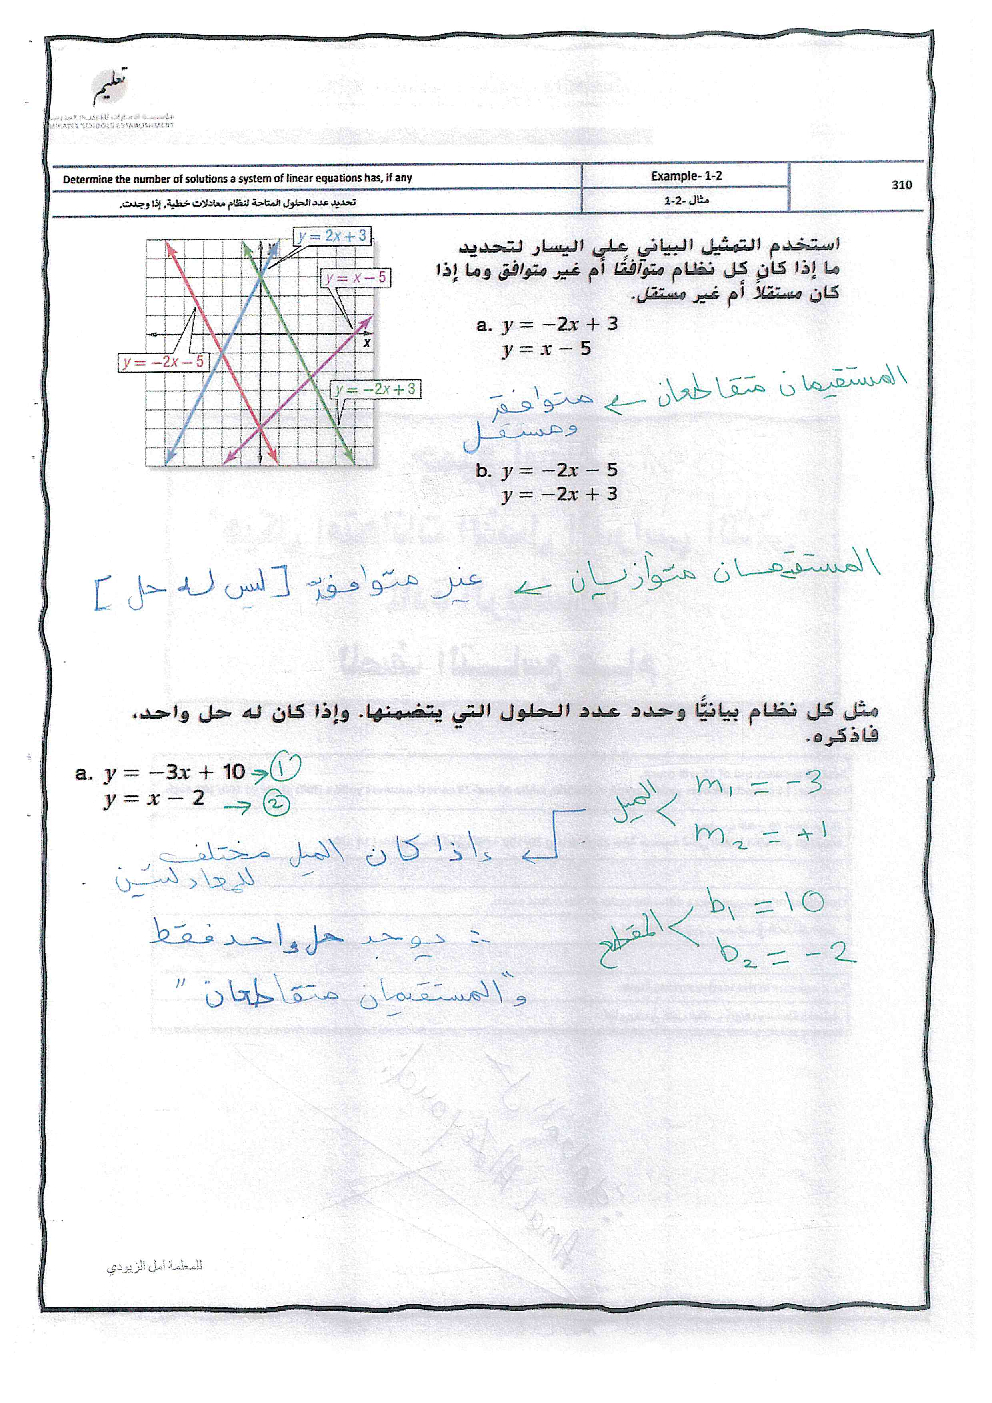 تعليم
مؤسسة الإمارات للتعليم المدرسي
EMIRATES SCHOOLS ESTABLISHMENT
Determine the number of solutions a system of linear equations has, if any
Example- 1-2
310
تحديد عدد الحلول المتاحة لنظام معادلات خطية، إذا وجدت.
مثال -2-1
استخدم التمثيل البياني على اليسار لتحديد
ما إذا كان كل نظام متوافقًا أم غير متوافق وما إذا
كان مستقلاً أم غير مستقل.
y
y = 2x + 3
y = x − 5
x
y = −2x − 5
y = −2x + 3
a. y = −2x + 3
y = x − 5
المستقيمان متقاطعان ⇐ متوافق
ومستقل
b. y = −2x − 5
y = −2x + 3
المستقيمان متوازيان ⇐ غير متوافق [ليس له حل]
مثل كل نظام بيانيًّا وحدد عدد الحلول التي يتضمنها. وإذا كان له حل واحد،
فاذكره.
a. y = −3x + 10 → ①
y = x − 2 → ②
الميل
m₁ = −3
m₂ = +1
إذا كان الميل مختلف
للمعادلتين
المقطع
b₁ = 10
b₂ = −2
∴ يوجد حل واحد فقط
و"المستقيمان متقاطعان"
للمعلمة امل الزيودي